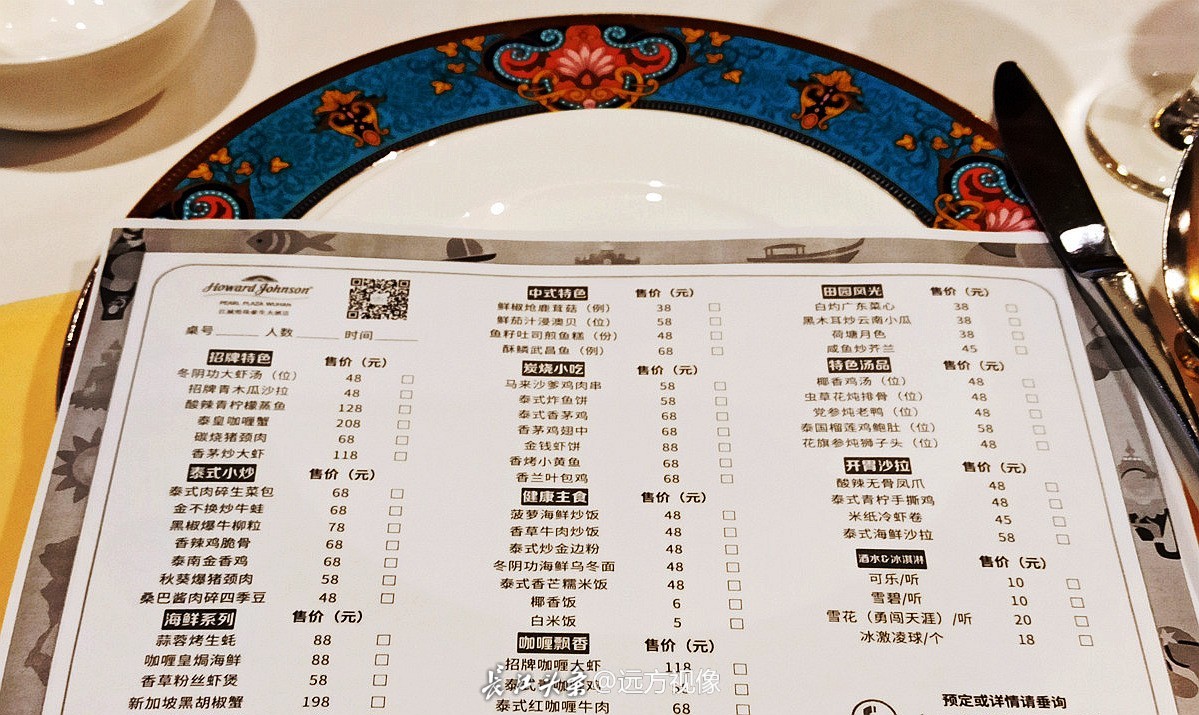 Howard Johnson
PEARL PLAZA WUHAN
桌号 人数 时间
招牌特色 售价（元）
冬阴功大虾汤（位） 48
招牌青木瓜沙拉 48
酸辣青柠檬蒸鱼 128
泰皇咖喱蟹 208
碳烧猪颈肉 68
香茅炒大虾 118
泰式小炒 售价（元）
泰式肉碎生菜包 68
金不换炒牛蛙 68
黑椒爆牛柳粒 78
香辣鸡脆骨 68
泰南金香鸡 68
秋葵爆猪颈肉 58
桑巴酱肉碎四季豆 48
海鲜系列 售价（元）
蒜蓉烤生蚝 88
咖喱皇焗海鲜 88
香草粉丝虾煲 58
新加坡黑胡椒蟹 198
中式特色 售价（元）
鲜椒炝鹿茸菇（例） 38
鲜茄汁浸澳贝（位） 58
鱼籽吐司煎鱼糕（份） 48
酥鳞武昌鱼（例） 68
炭烧小吃 售价（元）
马来沙爹鸡肉串 58
泰式炸鱼饼 58
泰式香茅鸡 68
香茅鸡翅中 68
金钱虾饼 88
香烤小黄鱼 68
香兰叶包鸡 68
健康主食 售价（元）
菠萝海鲜炒饭 48
香草牛肉炒饭 48
泰式炒金边粉 48
冬阴功海鲜乌冬面 48
泰式香芒糯米饭 48
椰香饭 6
白米饭 5
咖喱飘香 售价（元）
招牌咖喱大虾 118
泰式红咖喱牛肉 68
田园风光 售价（元）
白灼广东菜心 38
黑木耳炒云南小瓜 38
荷塘月色 38
咸鱼炒芥兰 45
特色汤品 售价（元）
椰香鸡汤（位） 48
虫草花炖排骨（位） 48
党参炖老鸭（位） 48
泰国榴莲鸡鲍肚（位） 58
花旗参炖狮子头（位） 48
开胃沙拉 售价（元）
酸辣无骨凤爪 48
泰式青柠手撕鸡 48
米纸冷虾卷 45
泰式海鲜沙拉 58
酒水&冰淇淋 售价（元）
可乐/听 10
雪碧/听 10
雪花（勇闯天涯）/听 20
冰激凌球/个 18
预定或详情请垂询
长江头条 @远方视像